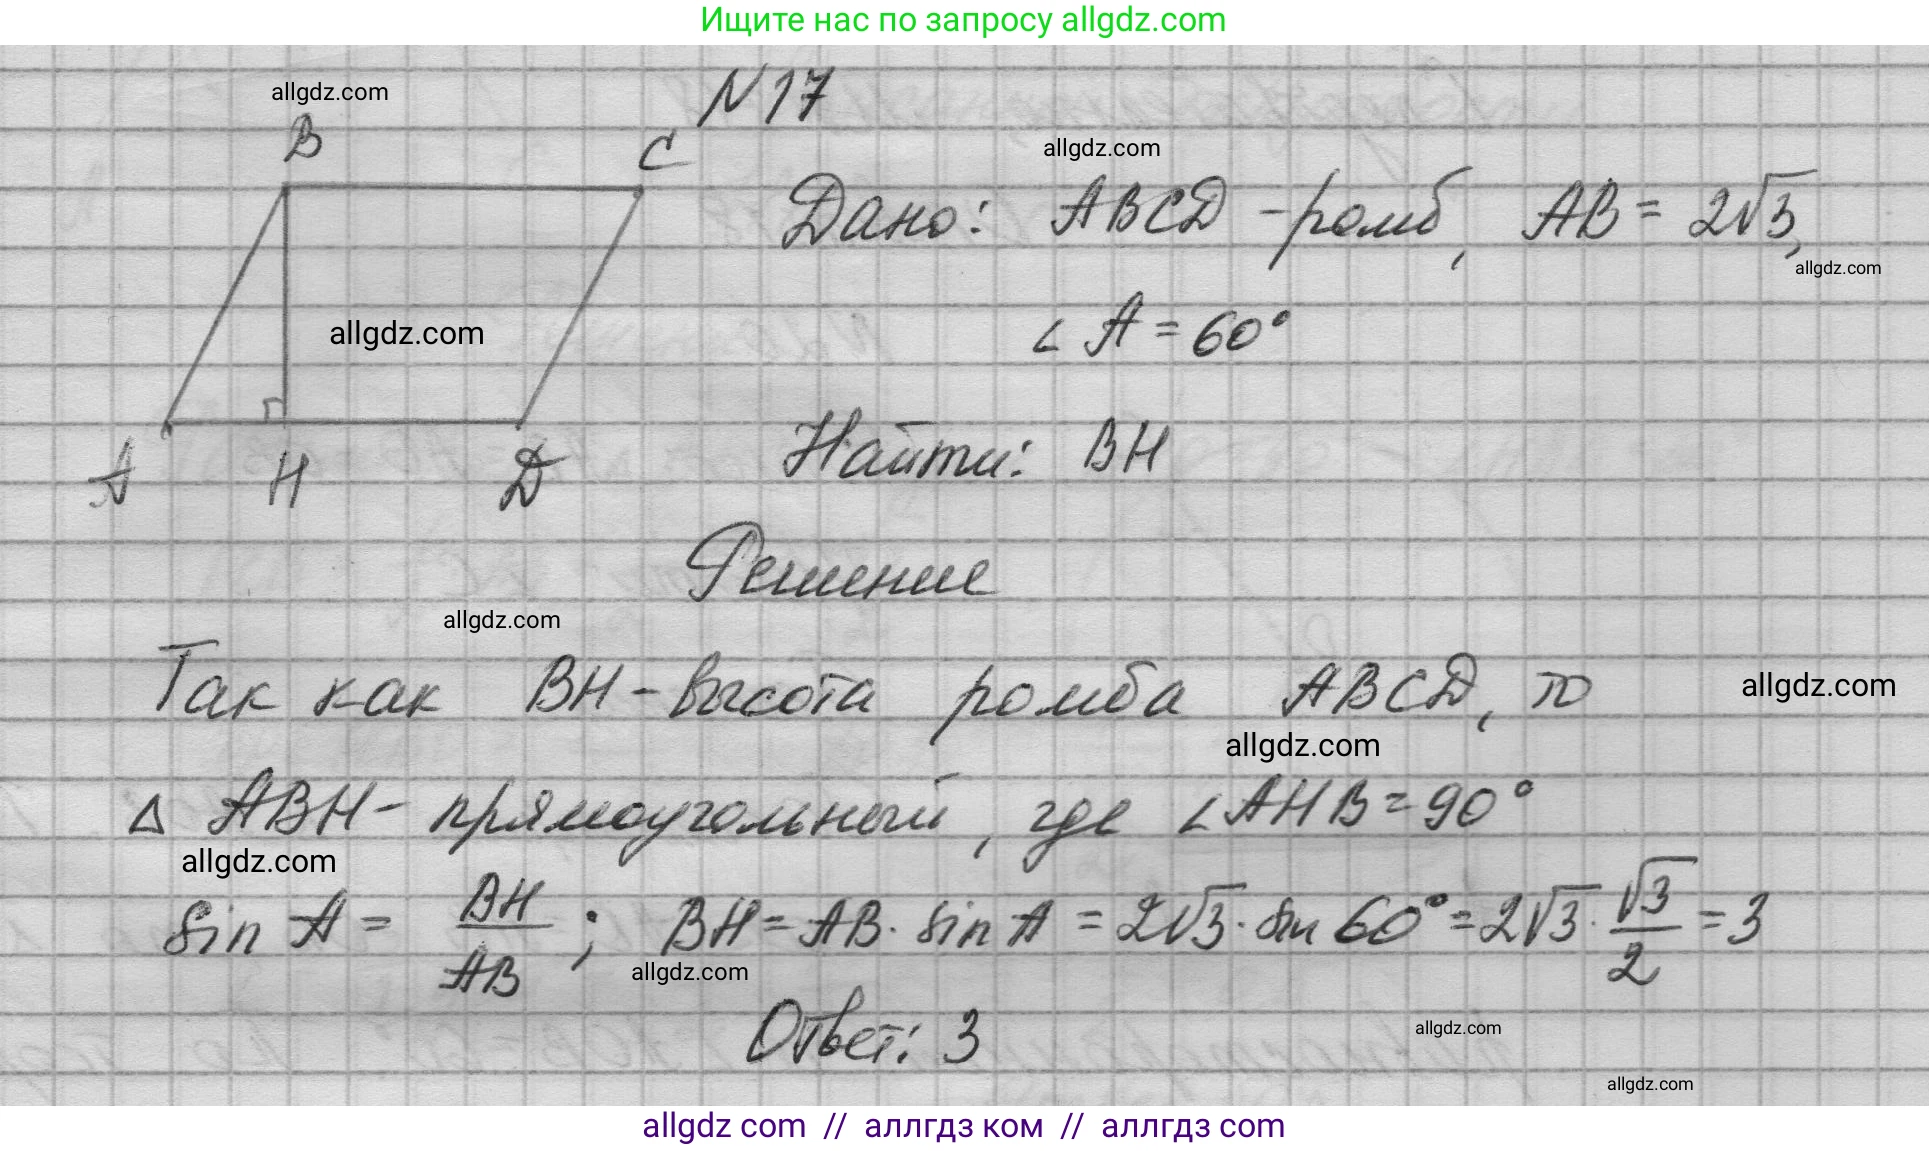 Ищите нас по запросу allgdz.com
allgdz.com
N 17
B
C
allgdz.com
Дано: ABCD - ромб, AB = 2√3,
allgdz.com
∠ A = 60°
allgdz.com
Найти: BH
A
H
D
Решение
allgdz.com
Так как BH - высота ромба ABCD, то
allgdz.com
allgdz.com
△ ABH - прямоугольный, где ∠AHB = 90°
allgdz.com
sin A = BH/AB ; BH = AB · sin A = 2√3 · sin 60° = 2√3 · √3/2 = 3
allgdz.com
Ответ: 3
allgdz.com
allgdz.com
allgdz com // аллгдз ком // аллгдз com